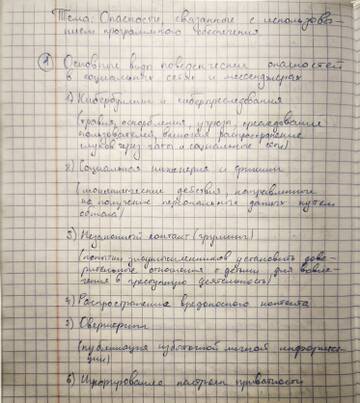 Тема: Опасности, связанные с использова-
нием программного обеспечения
1 Основные виды поведенческих опасностей
в социальных сетях и мессенджерах
1) Кибербуллинг и киберпреследования
(травля, оскорбления, угрозы, преследование
пользователей, включая распространение
слухов через чаты и социальные сети)
2) Социальная инженерия и фишинг
(мошеннические действия, направленные
на получение персональных данных путем
обмана)
3) Незаконный контакт (груминг)
(попытки злоумышленников установить дове-
рительные отношения с детьми для вовле-
чения в преступную деятельность)
4) Распространение вредоносного контента
5) Овершеринг
(публикация избыточной личной информа-
ции)
6) Игнорирование настроек приватности